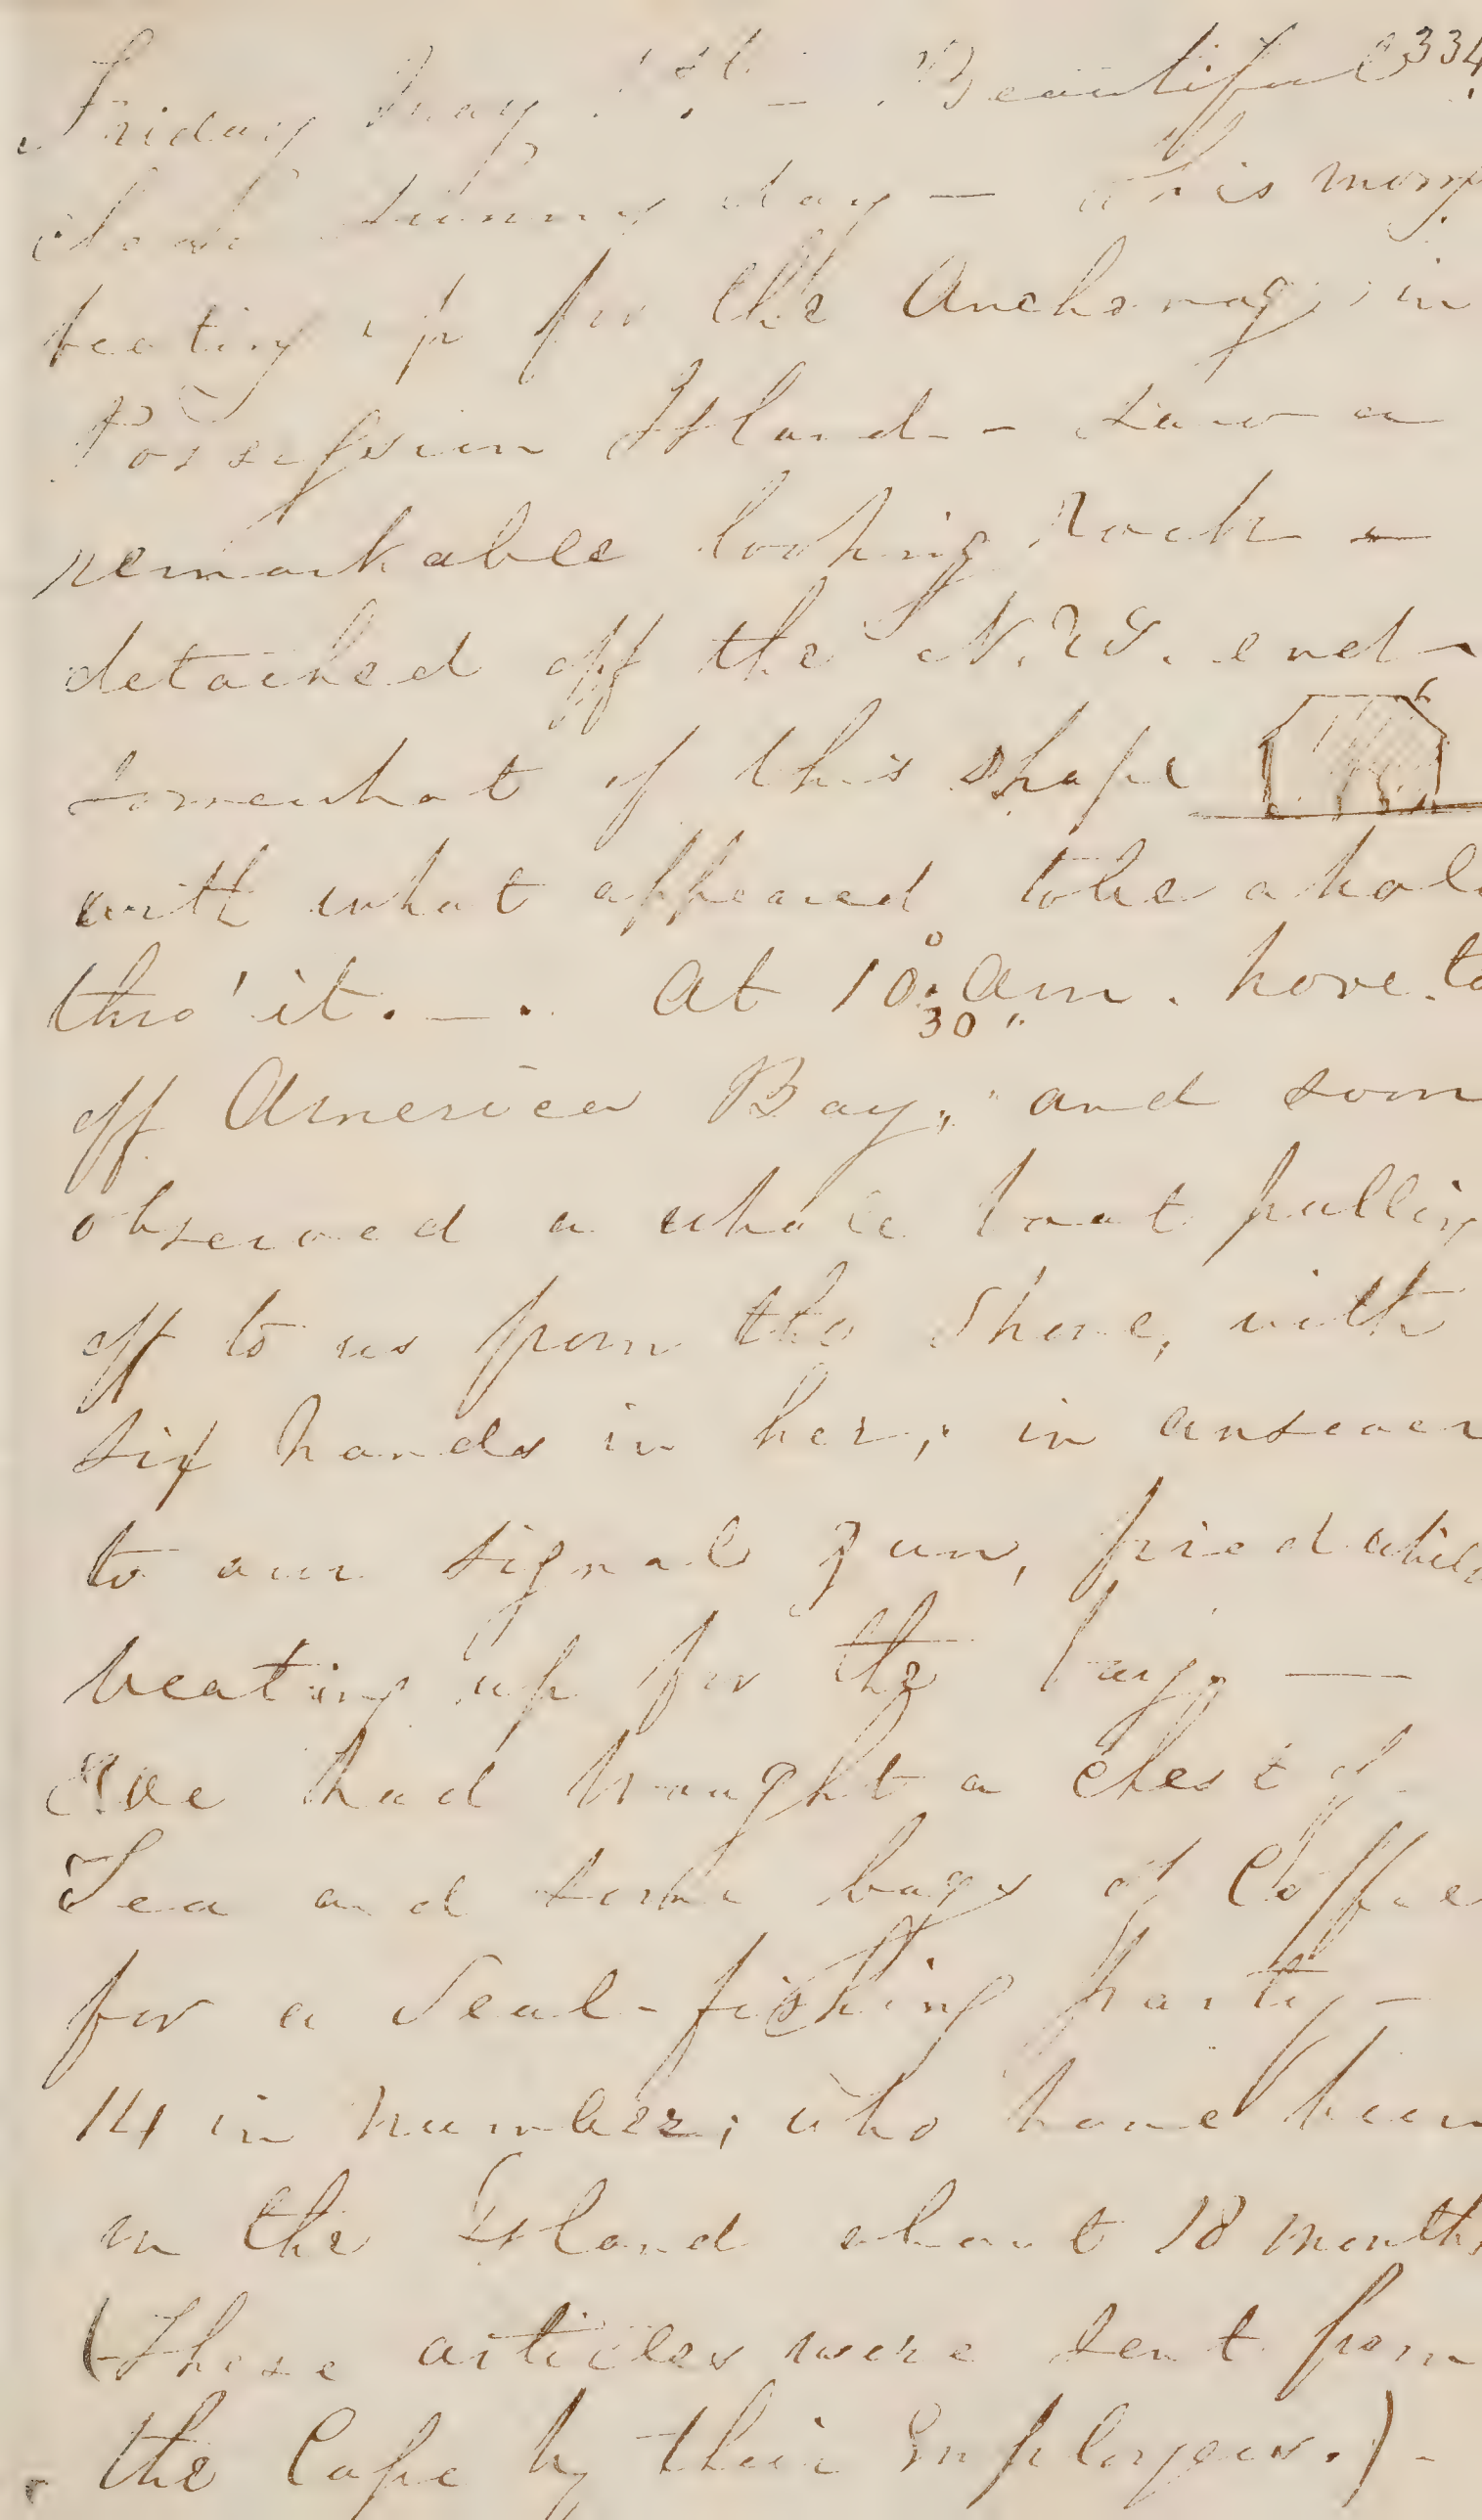 334
Friday May - Beautiful
clear sunny day - This morng
beating up for the Anchorage in
Possession Island - saw a
remarkable looking rock -
detached off the N.W. end -
somewhat of this shape
with what appeared to be a hole
thro' it. - . At 10.30 am. hove to
off America Bay, and soon
observed a whale boat pulling
off to us from the Shore, with
six hands in her, in answer
to our signal gun, fired while
beating up for the bay. -
We had brought a chest of
Tea and some bags of Coffee
for a Seal-fishing party -
14 in number; who have been
on the Island about 18 months
(These articles were sent from
the Cape by their Employers.) -